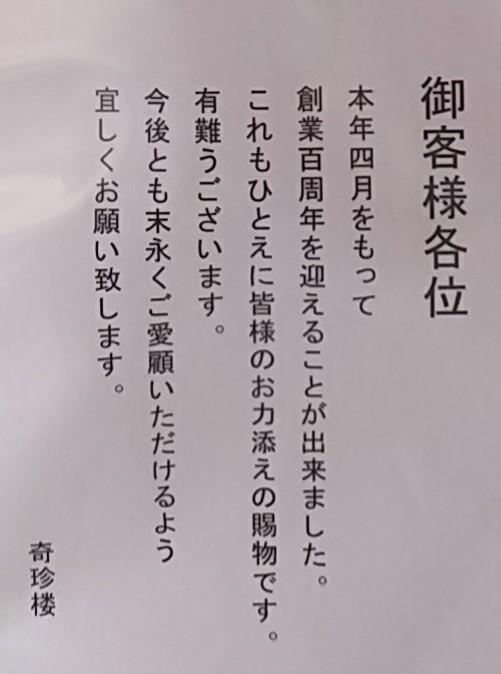 御客様各位
本年四月をもって
創業百周年を迎えることが出来ました。
これもひとえに皆様のお力添えの賜物です。
有難うございます。
今後とも末永くご愛顧いただけるよう
宜しくお願い致します。
奇珍楼